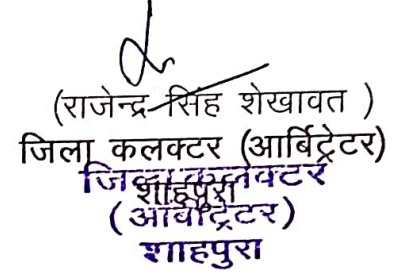 (राजेन्द्र सिंह शेखावत )
जिला कलक्टर (आर्बिट्रेटर)
जिला कलेक्टर
शाहपुरा
(आर्बीट्रेटर)
शाहपुरा